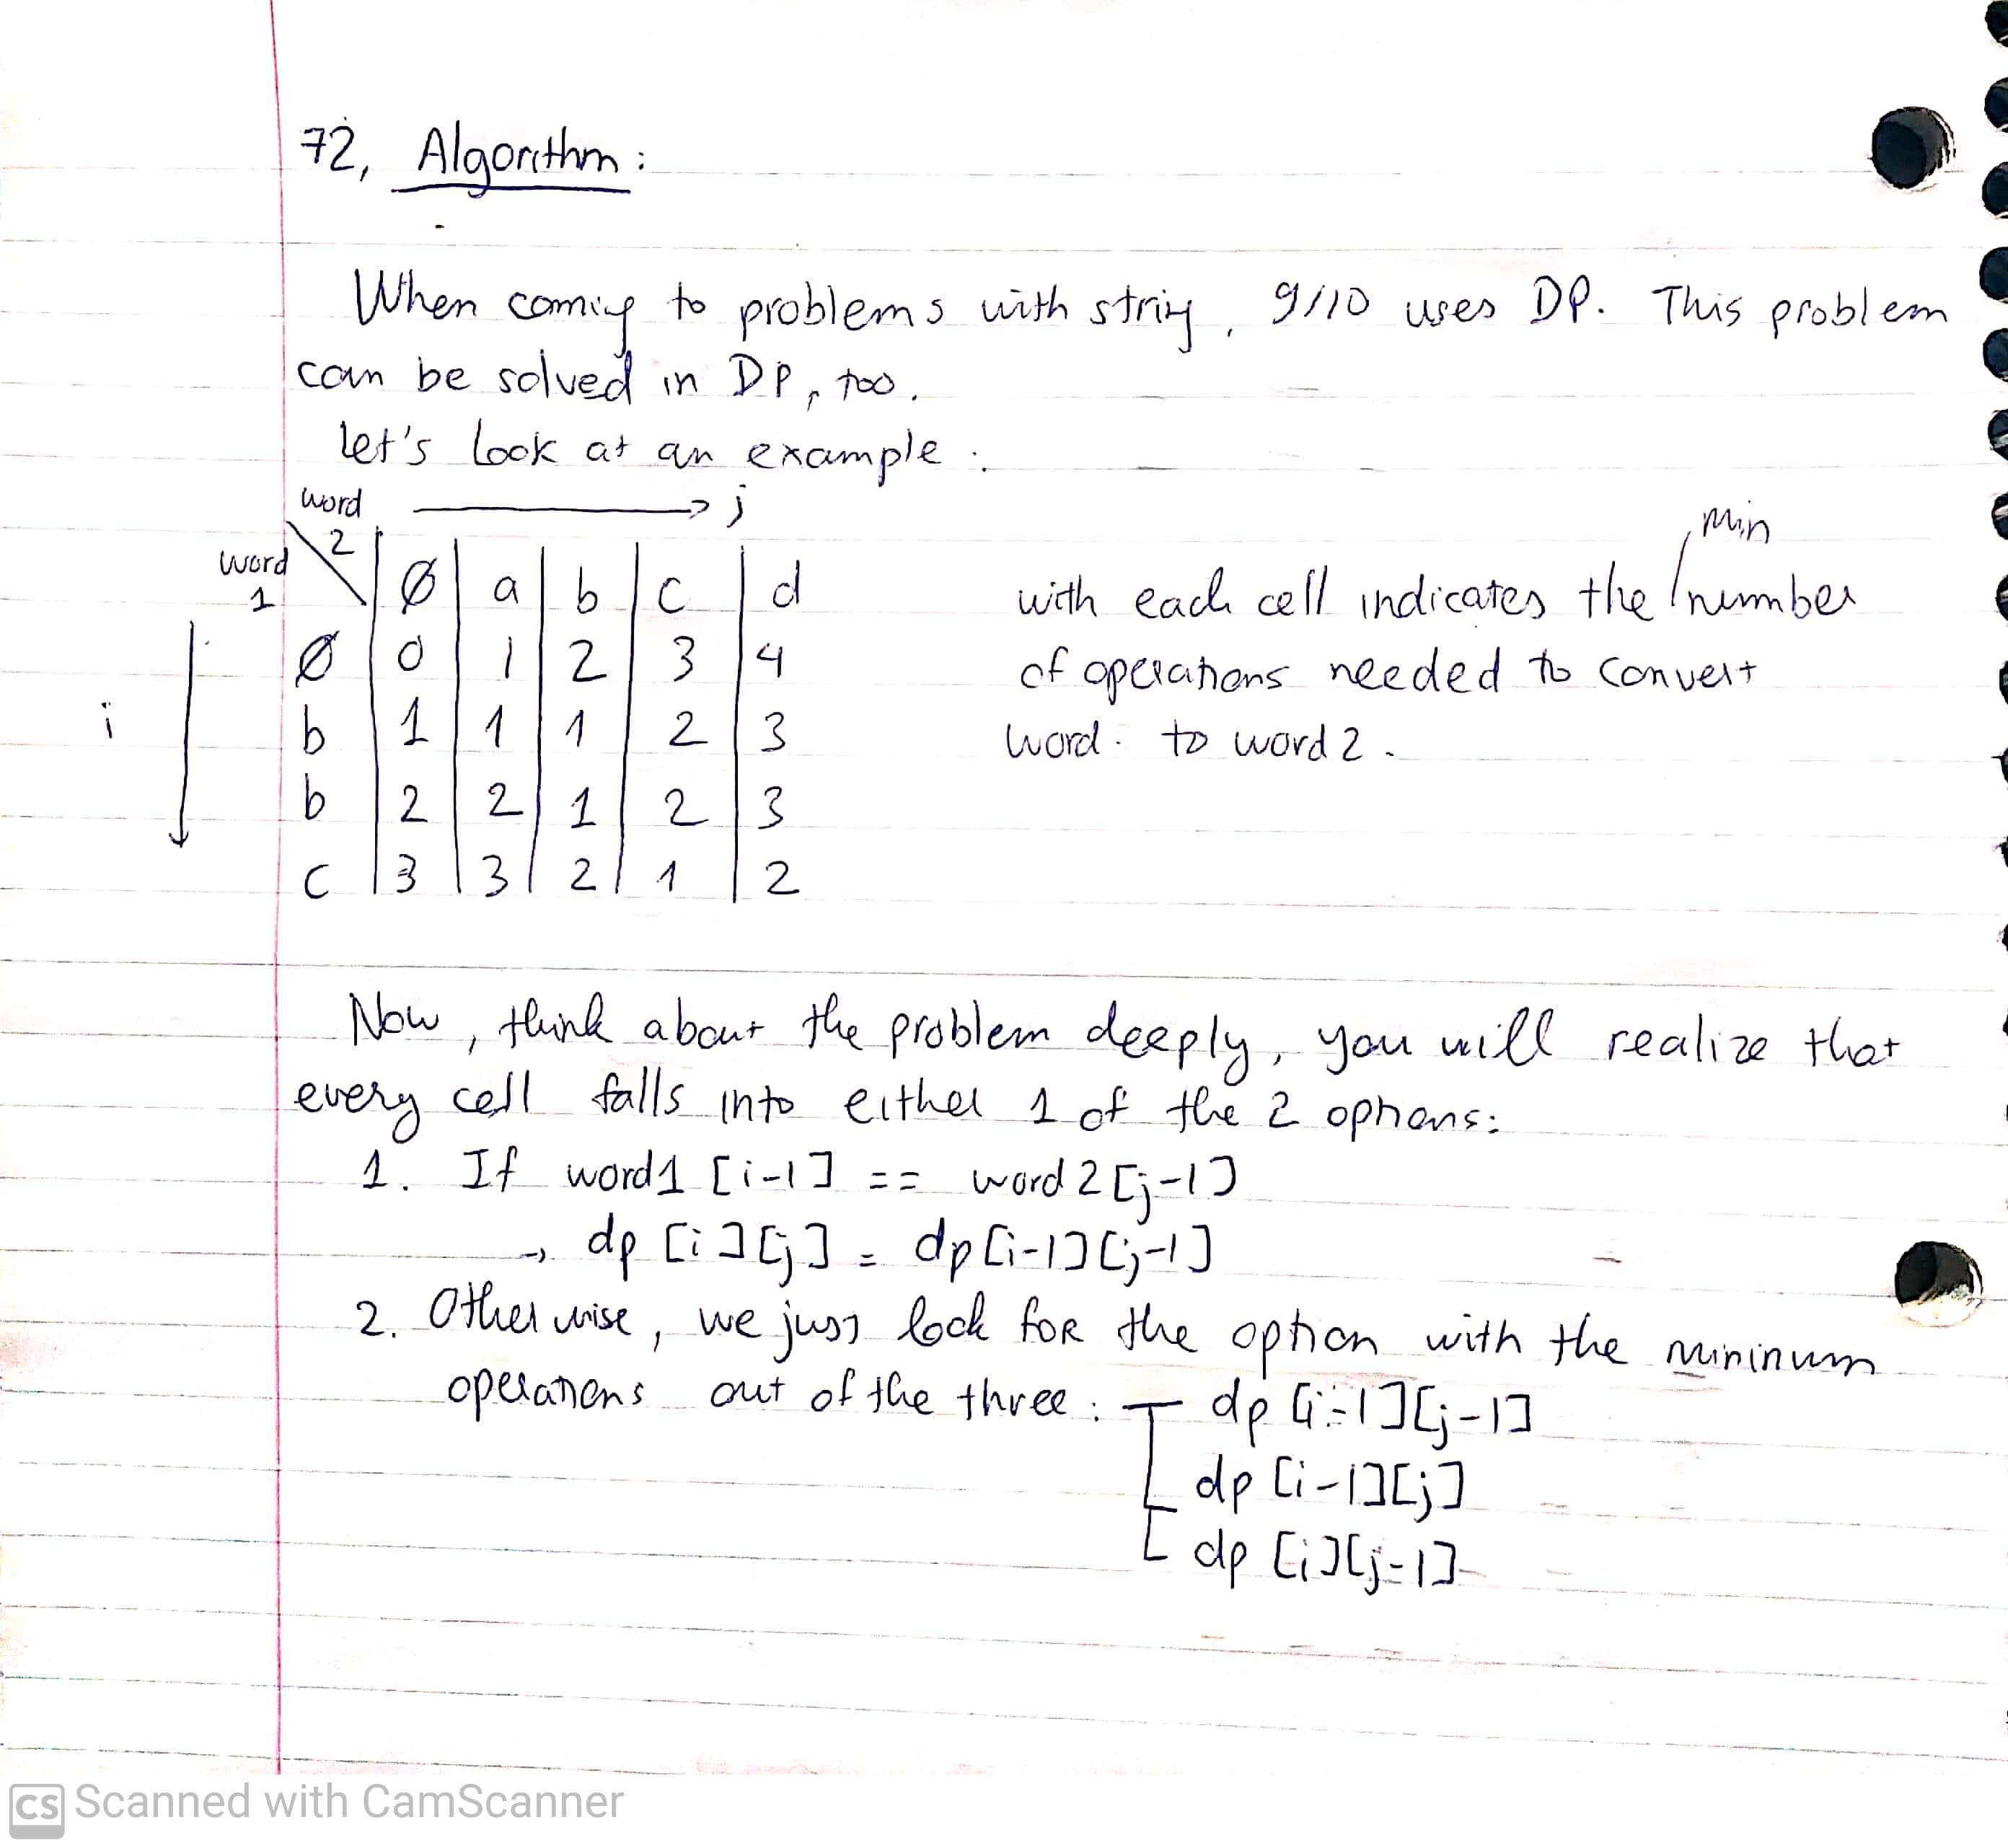 72, Algorithm:
When coming to problems with string, 9/10 uses DP. This problem
can be solved in DP, too.
let's look at an example:
word 2 → j
word 1 Ø a b c d
Ø 0 1 2 3 4
b 1 1 1 2 3
b 2 2 1 2 3
c 3 3 2 1 2
i
with each cell indicates the min number
of operations needed to convert
word. to word 2.
Now, think about the problem deeply, you will realize that
every cell falls into either 1 of the 2 options:
1. If word1 [i-1] == word2[j-1]
→ dp [i][j] = dp[i-1][j-1]
2. Otherwise, we just look for the option with the mininum
operations out of the three: dp [i-1][j-1]
dp [i-1][j]
dp [i][j-1]
CS Scanned with CamScanner